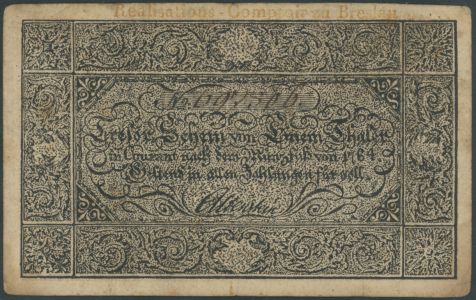 Realisations-Comptoir zu Breslau
No
Tresor Schein von Einem Thaler
in Courant nach dem Münzfuß von 1764
Geltend in allen Zahlungen für voll.